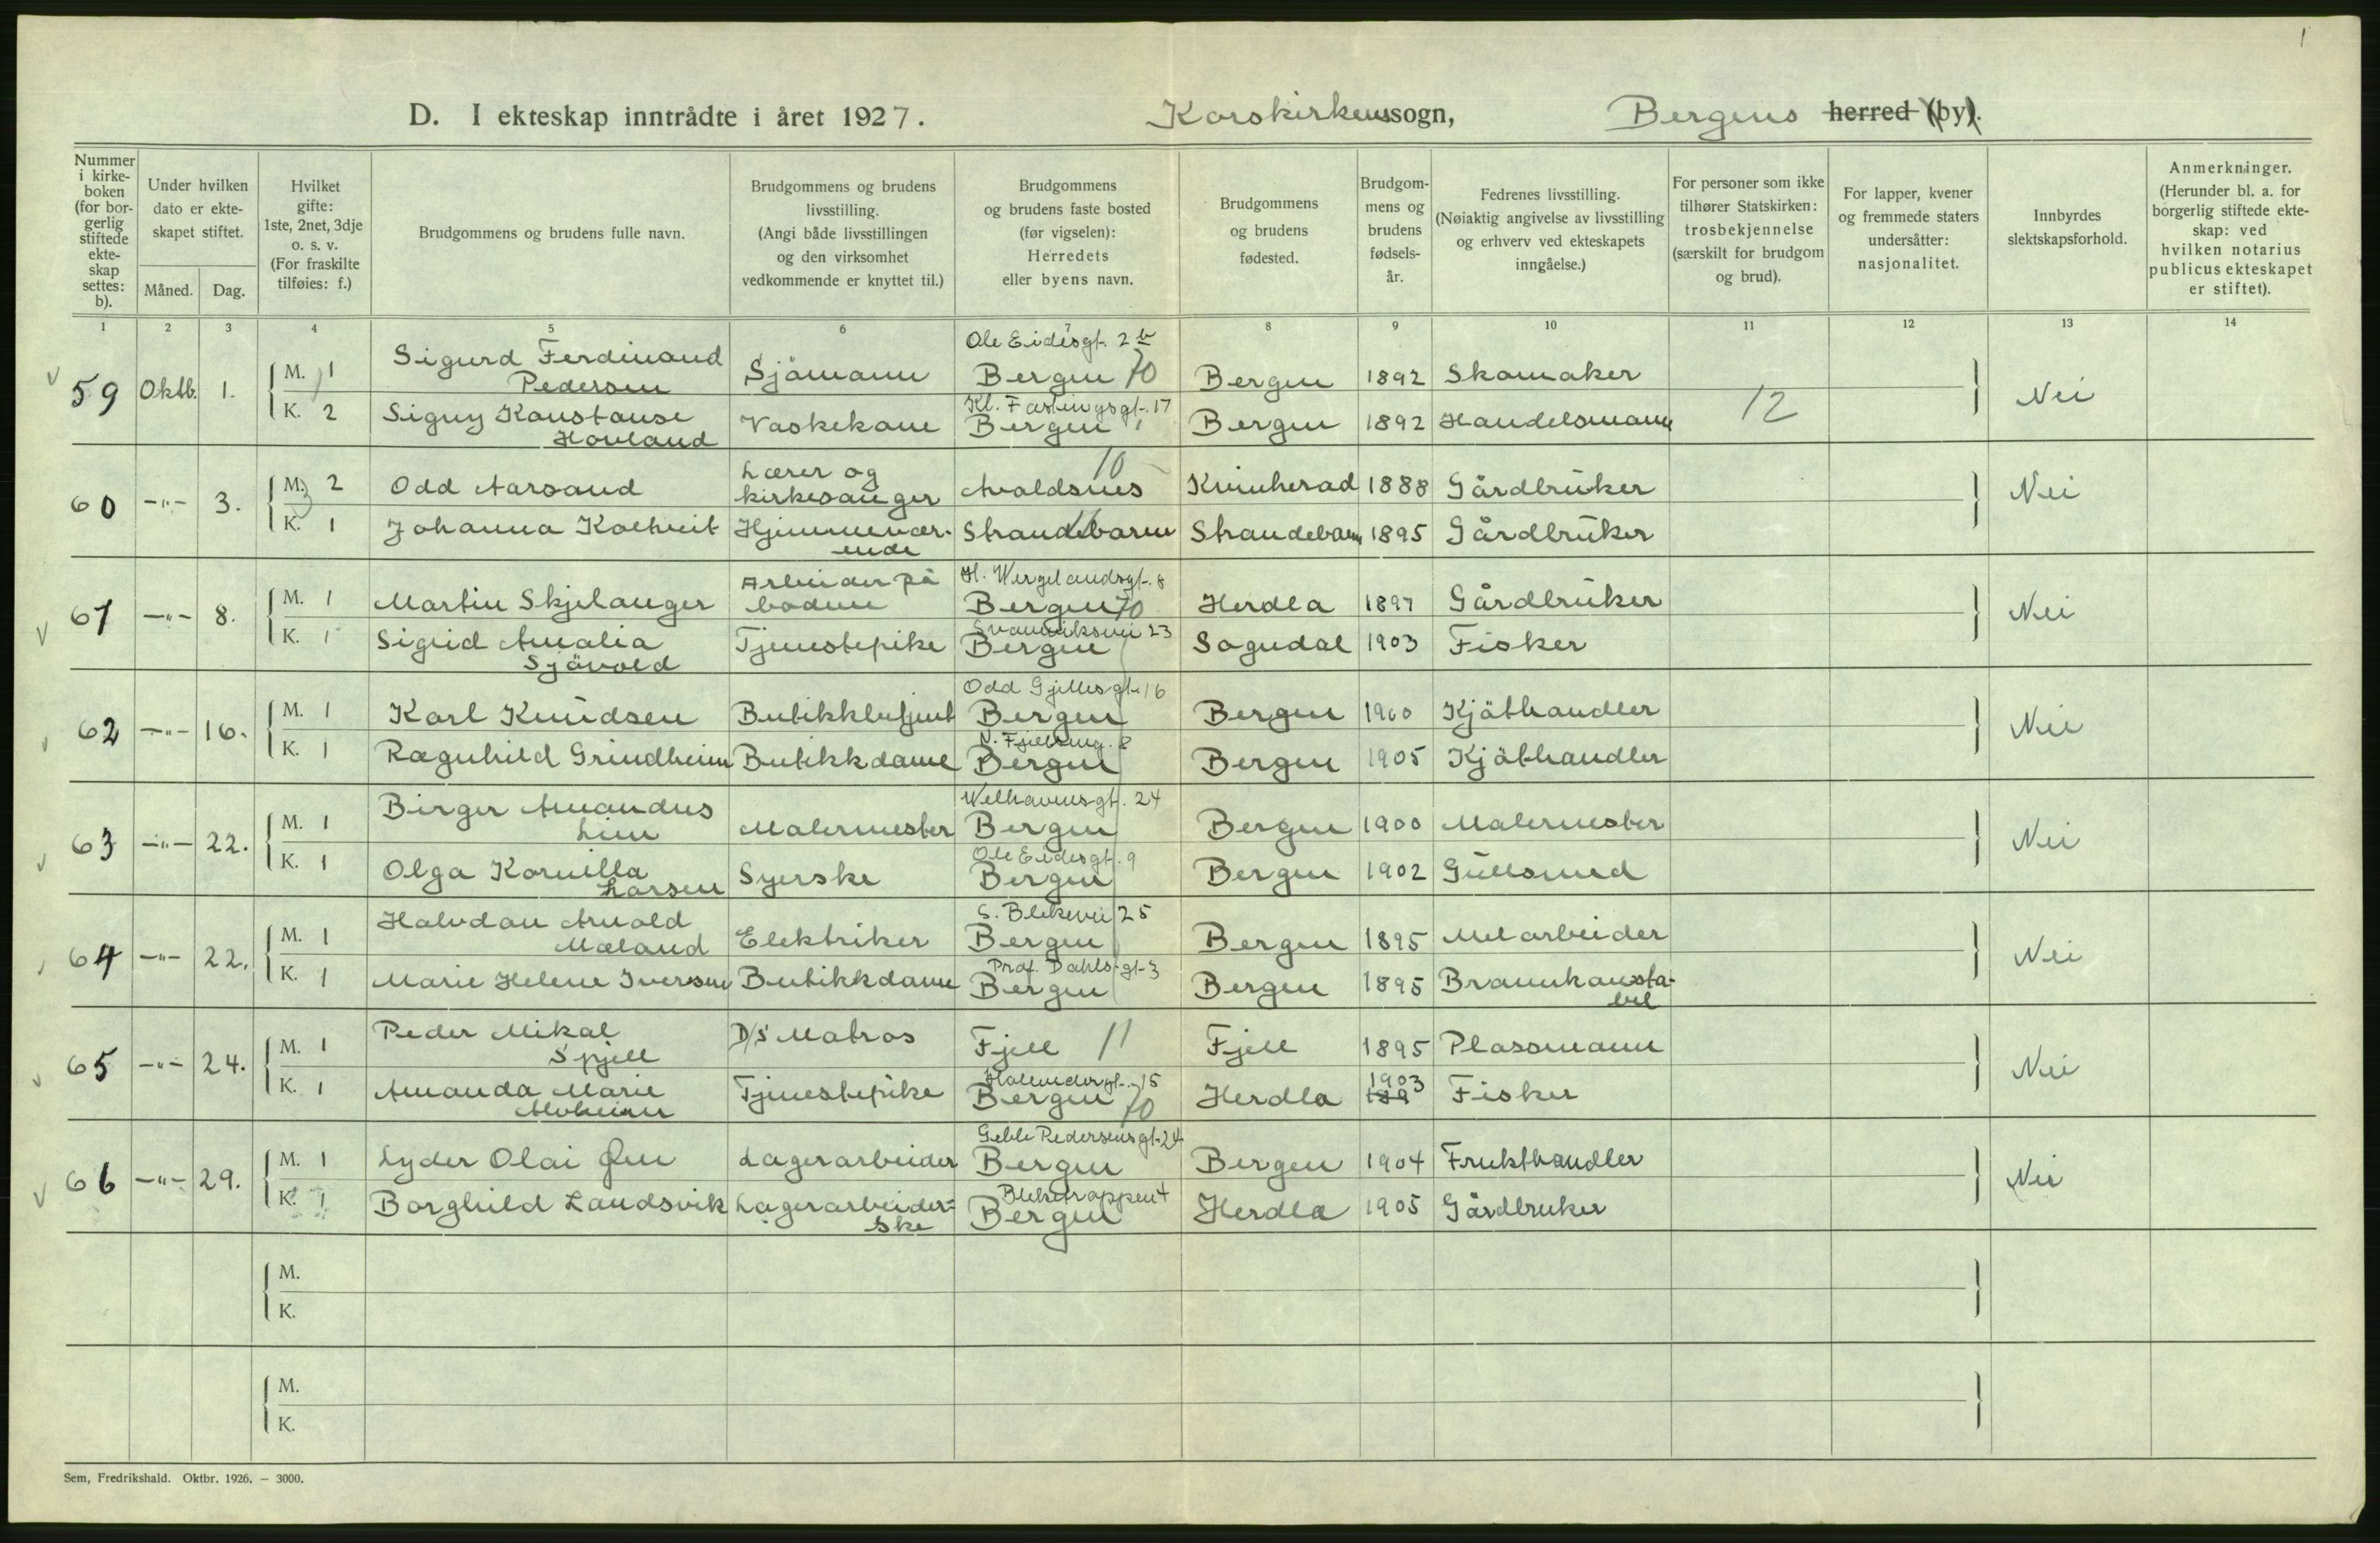 1
D. I ekteskap inntrådte i året 1927. Korskirkens sogn, Bergens herred (by).
Nummer i kirkeboken (for borgerlig stiftede ekteskap settes: b).
Under hvilken dato er ekteskapet stiftet.
Måned. Dag.
Hvilket gifte: 1ste, 2net, 3dje o. s. v. (For fraskilte tilføies: f.)
Brudgommens og brudens fulle navn.
Brudgommens og brudens livsstilling. (Angi både livsstillingen og den virksomhet vedkommende er knyttet til.)
Brudgommens og brudens faste bosted (før vigselen): Herredets eller byens navn.
Brudgommens og brudens fødested.
Brudgommens og brudens fødselsår.
Fedrenes livsstilling. (Nøiaktig angivelse av livsstilling og erhverv ved ekteskapets inngåelse.)
For personer som ikke tilhører Statskirken: trosbekjennelse (særskilt for brudgom og brud).
For lapper, kvener og fremmede staters undersåtter: nasjonalitet.
Innbyrdes slektskapsforhold.
Anmerkninger. (Herunder bl. a. for borgerlig stiftede ekteskap: ved hvilken notarius publicus ekteskapet er stiftet).
1 2 3 4 5 6 7 8 9 10 11 12 13 14
59 Oktb. 1. M. 1 Sigurd Ferdinand Pedersen Sjömann Ole Eidesgt. 2b Bergen 70 Bergen 1892 Skomaker 12 Nei
K. 2 Signy Konstanse Hovland Vaskekone Kl. Fastingsgt. 17 Bergen Bergen 1892 Handelsmann
60 -"- 3. M. 2 Odd Aarsand Lærer og kirkesanger 10 Avaldsnes Kvinherad 1888 Gårdbruker Nei
K. 1 Johanna Koltveit Hjemmeværende Strandebarm Strandebarm 1895 Gårdbruker
61 -"- 8. M. 1 Martin Skjelanger Arbeider på bodene H. Wergelandsgt. 8 Bergen 70 Herdla 1897 Gårdbruker Nei
K. 1 Sigrid Amalia Sjövold Tjenestepike 23 Bergen Sogndal 1903 Fisker
62 -"- 16. M. 1 Karl Knudsen Butikkbetjent Odd Gjellesgt. 16 Bergen Bergen 1900 Kjötthandler Nei
K. 1 Ragnhild Grindheim Butikkdame 8 Bergen Bergen 1905 Kjötthandler
63 -"- 22. M. 1 Birger Amandus Lien Malermester Welhavensgt. 24 Bergen Bergen 1900 Malermester Nei
K. 1 Olga Kornilla Larsen Syerske Ole Eidesgt. 9 Bergen Bergen 1902 Gullsmed
64 -"- 22. M. 1 Halvdan Arnold Mæland Elektriker S. Blekevei 25 Bergen Bergen 1895 Melarbeider Nei
K. 1 Marie Helene Iversen Butikkdame Prof. Dahlsgt. 3 Bergen Bergen 1895 Brannkonstabel
65 -"- 24. M. 1 Peder Mikal Spjell D/S Matros Fjell 11 Fjell 1895 Plassmann Nei
K. 1 Amanda Marie Alvheim Tjenestepike 15 Bergen 70 Herdla 1903 189 Fisker
66 -"- 29. M. 1 Lyder Olai Øen Lagerarbeider Geble Pedersensgt. 24 Bergen Bergen 1904 Frukthandler Nei
K. 1 Borghild Landsvik Lagerarbeiderske Bleketrappen 4 Bergen Herdla 1905 Gårdbruker
M.
K.
M.
K.
Sem, Fredrikshald. Oktbr. 1926. — 3000.